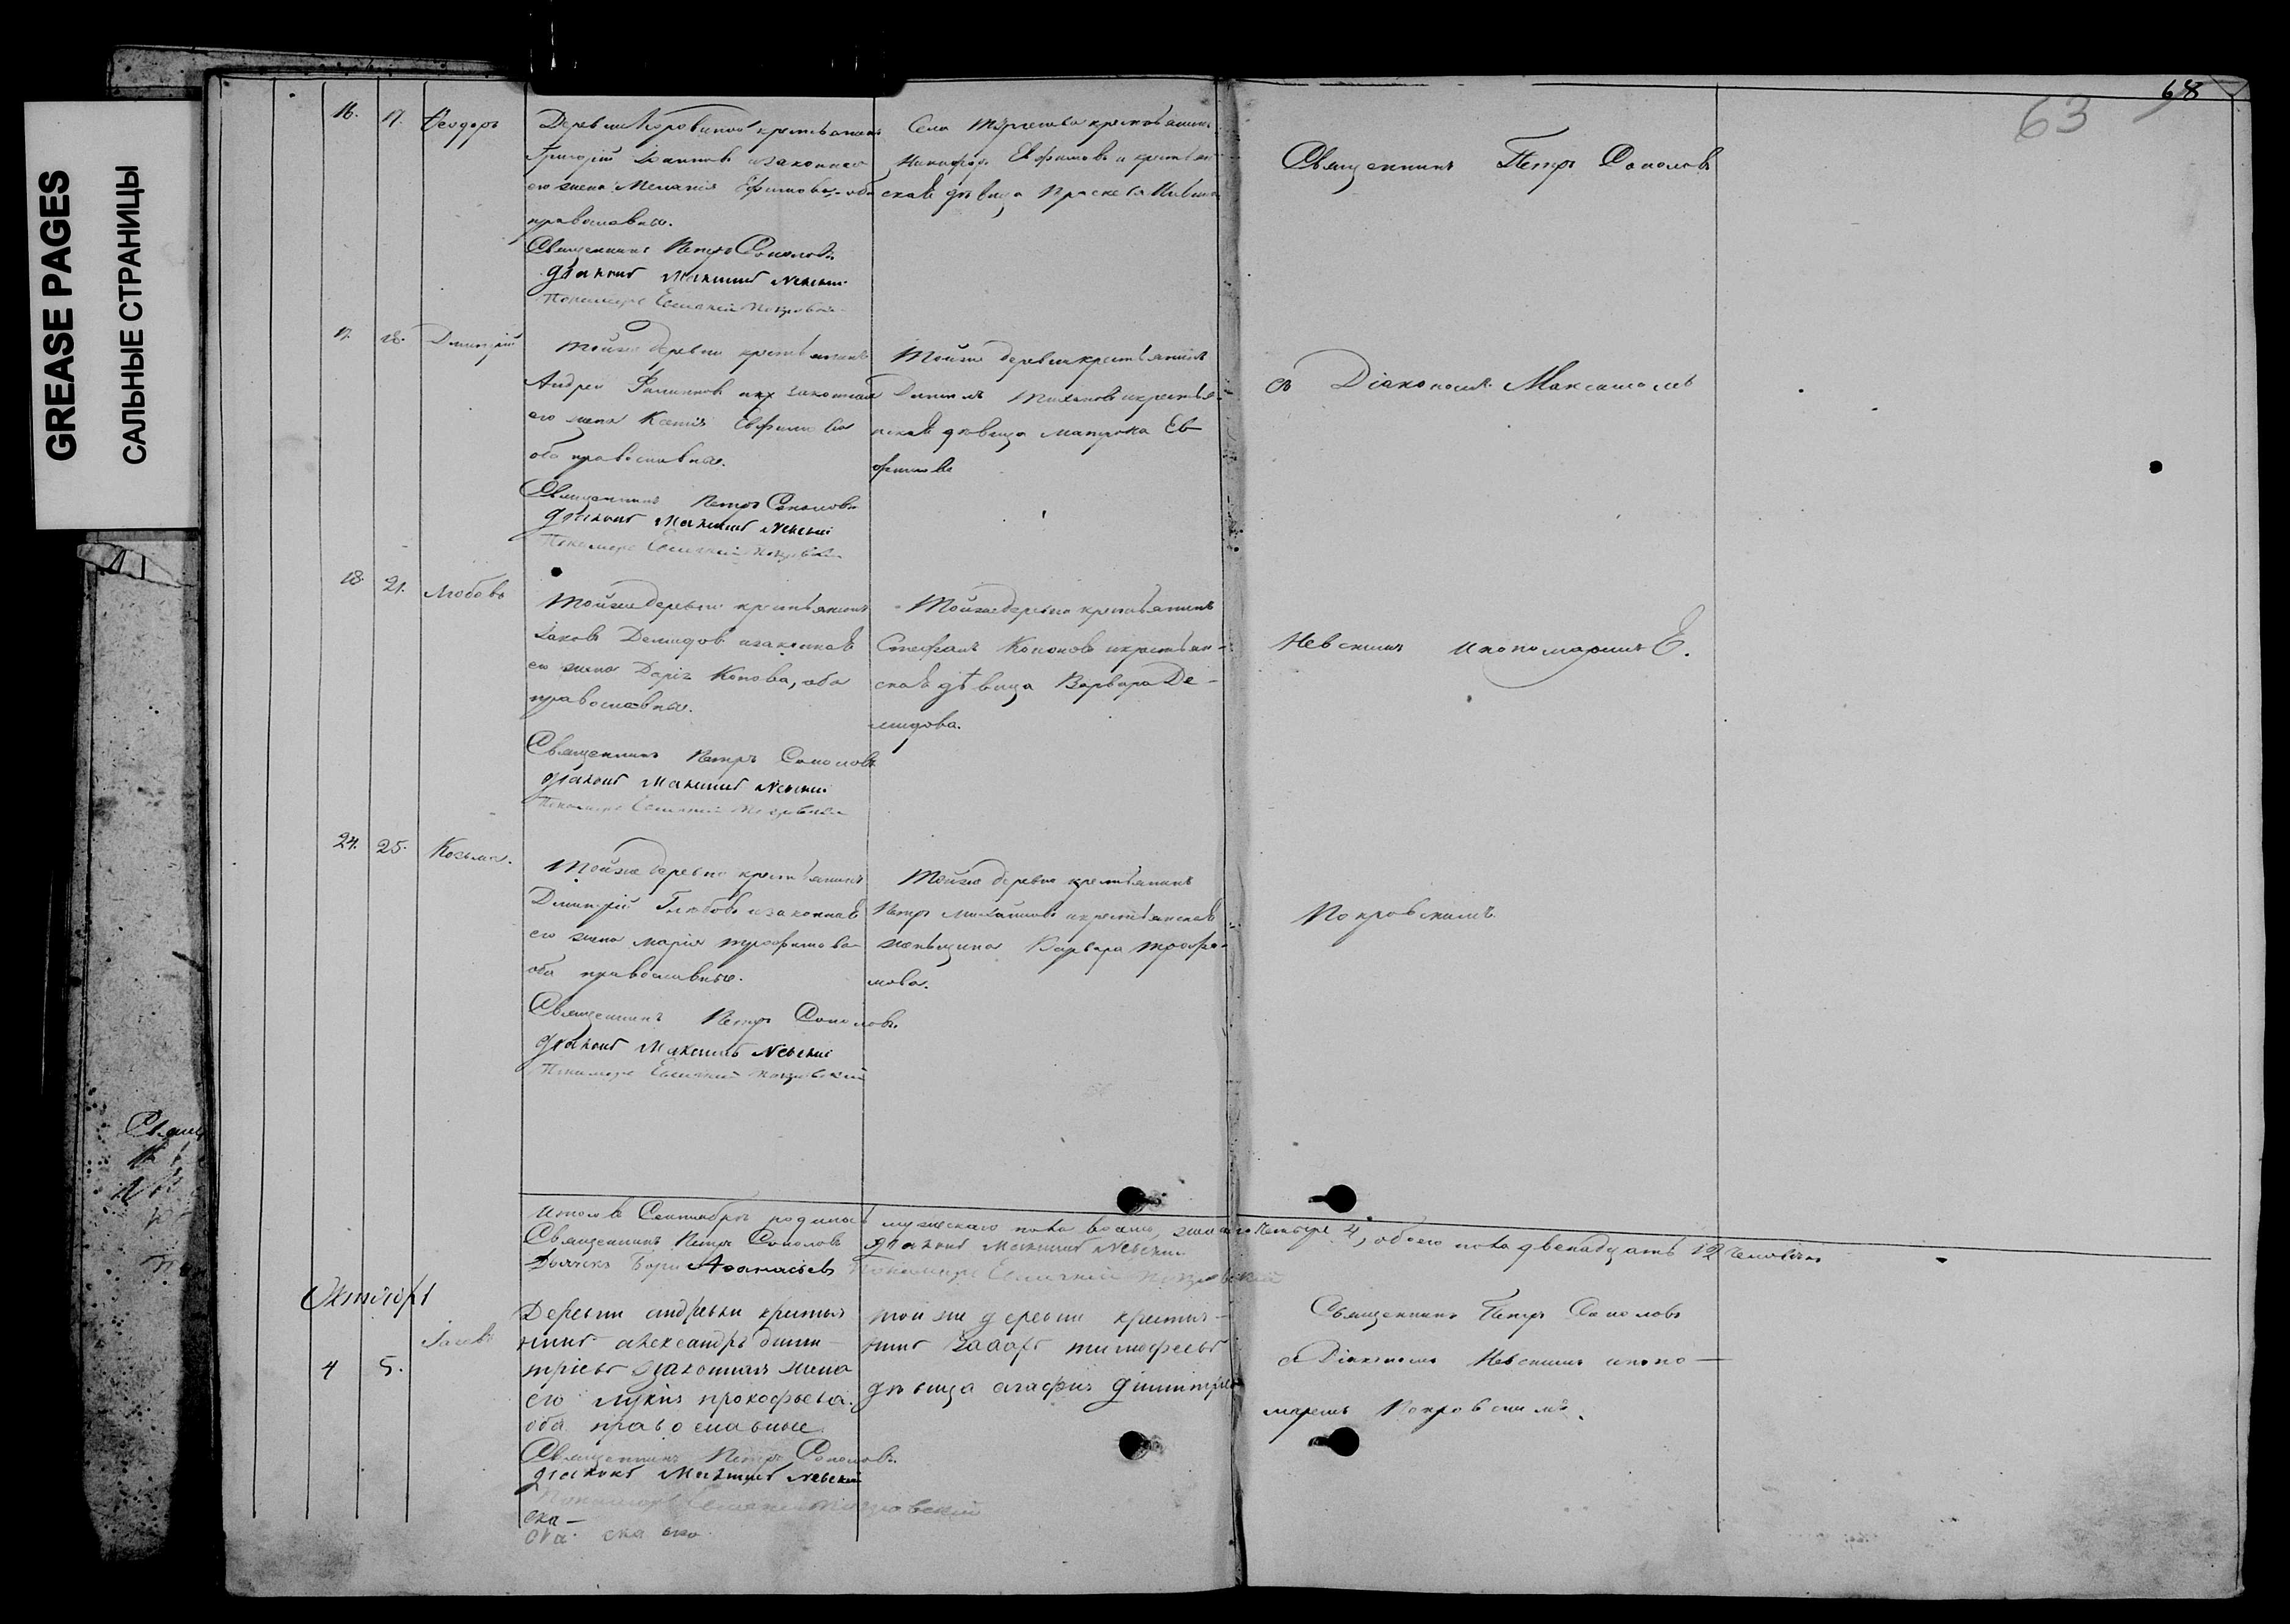 GREASE PAGES
САЛЬНЫЕ СТРАНИЦЫ
68
63
16. 17. Ѳеодоръ
Деревни Коровиной крестьянинъ
Григорій Іоанновъ и законная
его жена Меланія Ефимова, оба
православные.
Священникъ Петръ Соколовъ
діаконъ Максимъ Невскій
Пономарь Евгений Покровскій
Села крестьянинъ
Никифоръ Ефимовъ и крестьян-
ская дѣвица
Священникъ Петръ Соколовъ
17. 18. Димитрій
Тойже деревни крестьянинъ
Андрей Филиповъ и законная
его жена Ксенія Евфимова
оба православные.
Священникъ Петръ Соколовъ
діаконъ Максимъ Невскій
Пономарь Покровскій
Тойже деревни крестьянинъ
и крестья-
нская дѣвица Матрона Ев-
фимова
съ Діакономъ Максимомъ
18. 21. Любовь
Тойже деревни крестьянинъ
Іаковъ Демидовъ и законная
его жена Дарія Конова, оба
православные.
Священникъ Петръ Соколовъ
діаконъ Максимъ Невскій
Пономарь Покровскій
Тойже деревни крестьянинъ
Стефанъ Кононовъ и крестьян-
ская дѣвица Варвара Де-
мидова.
Невскимъ и пономаремъ Е.
24. 25. Козьма.
Тойже деревни крестьянинъ
Димитрій Глѣбовъ и законная
его жена Марія Трофимова
оба православные.
Священникъ Петръ Соколовъ
діаконъ Максимъ Невскій
Пономарь Покровскій
Тойже деревни крестьянинъ
Петръ Михайловъ и крестьянская
женьщина Варвара Трофи-
мова.
Покровскимъ
Итого въ Сентябрѣ родилось мужескаго пола восемь, женскаго четыре 4, обоего пола двенадцать 12 человѣкъ
Священникъ Петръ Соколовъ діаконъ Максимъ Невскій
Дьячекъ Аѳанасіевъ Пономарь Покровскій
Октябрь
4 5. Іаковъ
Деревни андревки крестья
нинъ александръ дими-
тріевъ и законная жена
его лукія прокофьева.
оба православные
Священникъ Петръ Соколовъ
діаконъ Максимъ Невскій
Пономарь Покровскій
той же деревни крестья-
нинъ тимофеевъ
дѣвица агафия димитріев
Священникъ Петръ Соколовъ
съ Діакономъ Невскимъ и поно-
маремъ Покровскимъ.
ска-
ска ско